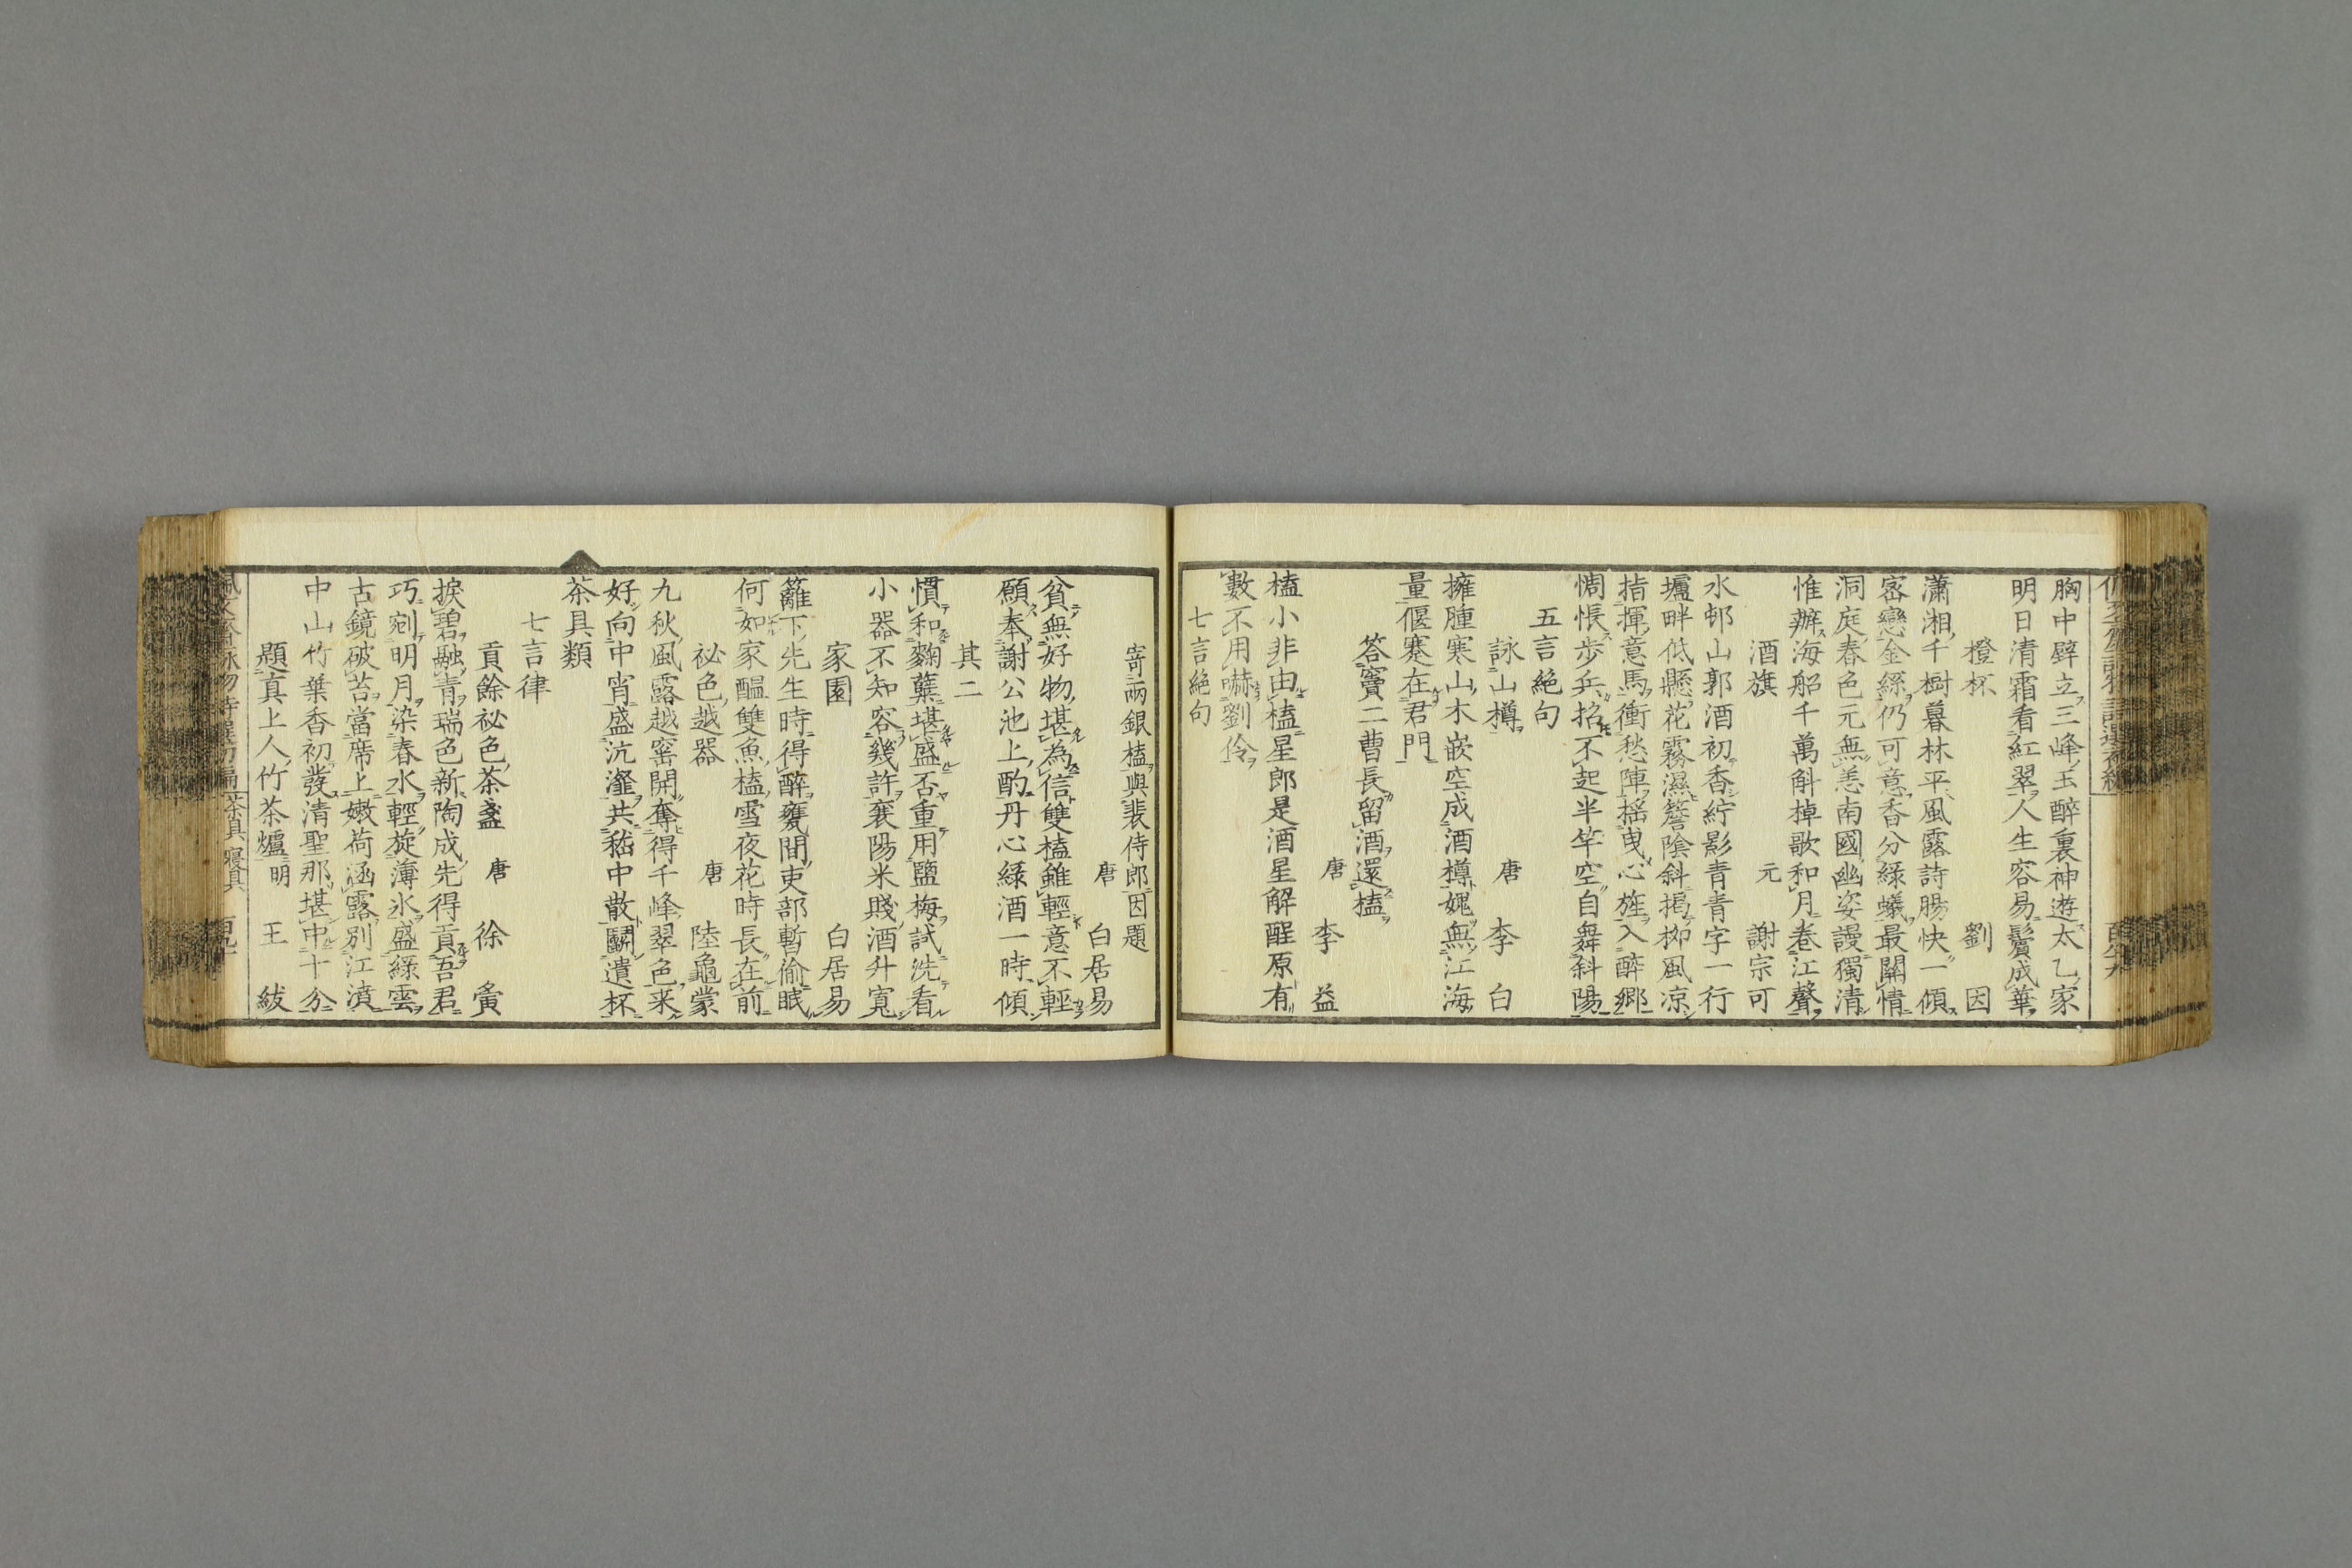 胸中壁立三峰玉醉裏神遊太乙家
明日清霜看紅翠人生容易鬢成華
橙杯 劉因
瀟湘千樹暮林平風露詩腸快一傾
密戀金絲仍可意香分綠蟻最關情
洞庭春色元無恙南國幽姿謾獨清
惟辦海船千萬斛棹歌和月卷江聲
酒旗 元 謝宗可
水邨山郭酒初香紵影青青字一行
壚畔低懸花霧濕簷陰斜掲柳風凉
指揮意馬衝愁陣揺曳心旌入醉郷
惆悵步兵招不起半竿空自舞斜陽
五言絶句
詠山樽 唐 李白
擁腫寒山木嵌空成酒樽媿無江海
量偃蹇在君門
答竇二曹長留酒還榼 唐 李益
榼小非由榼星郎是酒星解酲原有
數不用嚇劉伶
七言絶句
寄兩銀榼與裴侍郎因題
唐 白居易
貧無好物堪為信雙榼雖輕意不輕
願奉謝公池上酌丹心綠酒一時傾
其二
慣和麴蘖堪盛否重用鹽梅試洗看
小器不知容幾許襄陽米賤酒升寬
家園 白居易
籬下先生時得醉甕間吏部暫偷眠
何如家醖雙魚榼雪夜花時長在前
祕色越器 唐 陸龜蒙
九秋風露越窑開奪得千峰翠色来
好向中宵盛沆瀣共嵇中散鬭遺杯
茶具類
七言律
貢餘祕色茶盞 唐 徐夤
捩碧融青瑞色新陶成先得貢吾君
巧剜明月染春水輕旋薄氷盛綠雲
古鏡破苔當席上嫩荷涵露別江濆
中山竹葉香初發清聖那堪中十分
題真上人竹茶爐 明 王紱
茶具 寢具